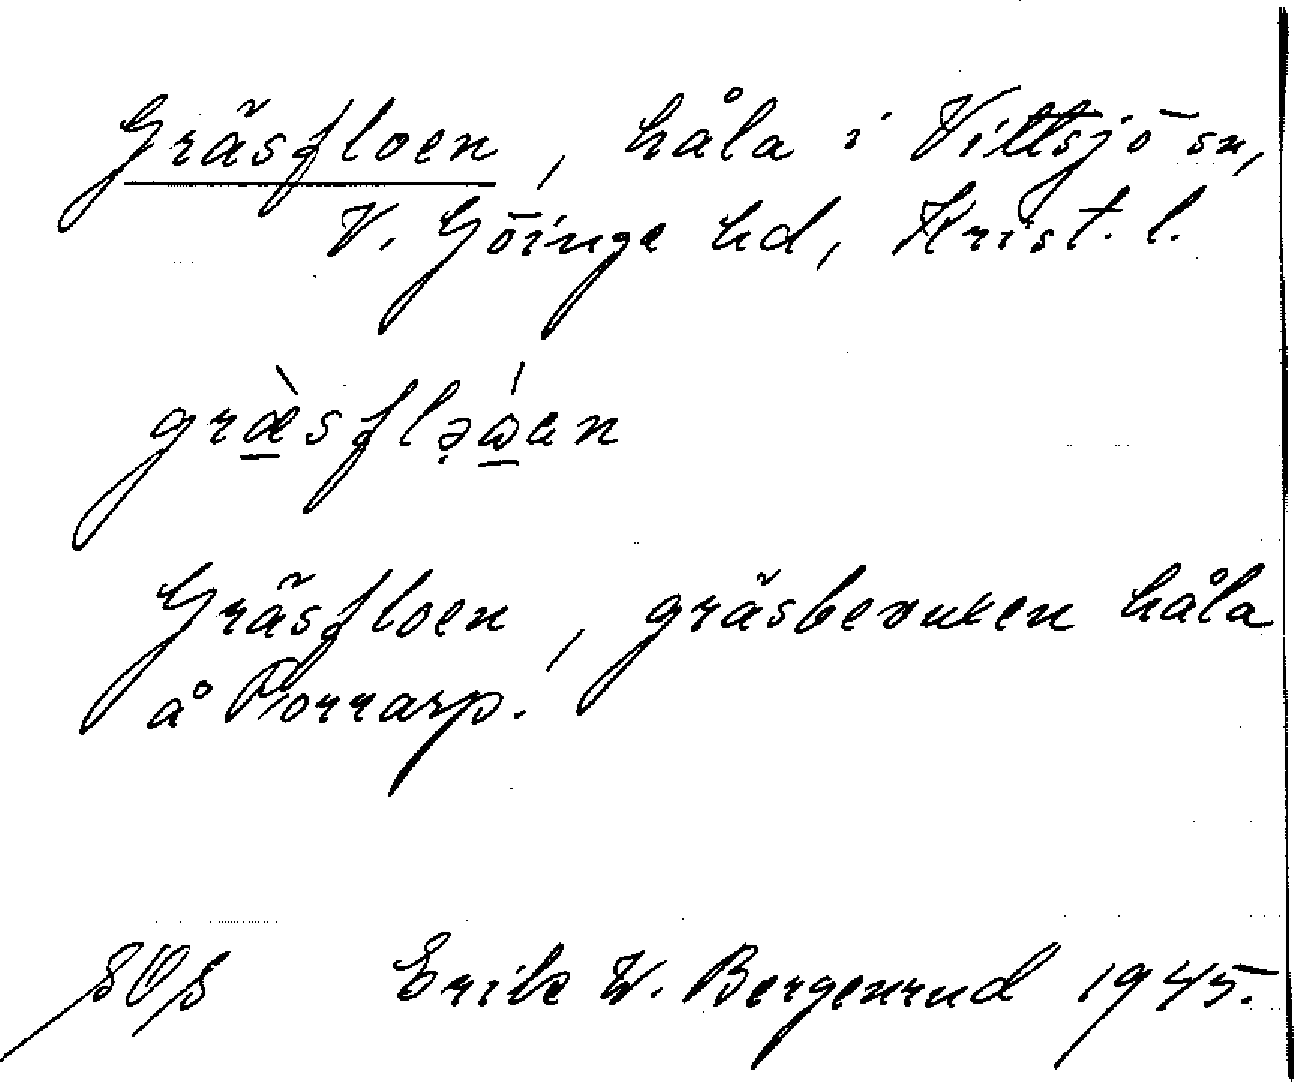 Gräsfloen, håla i Vittsjö sn,
V. Göinge hd, Krist. l.
græ̠̀sflə̣ώ̠en
Gräsfloen, gräsbevuxen håla
å Porrarp.
Erik W. Bergenrud 1945.